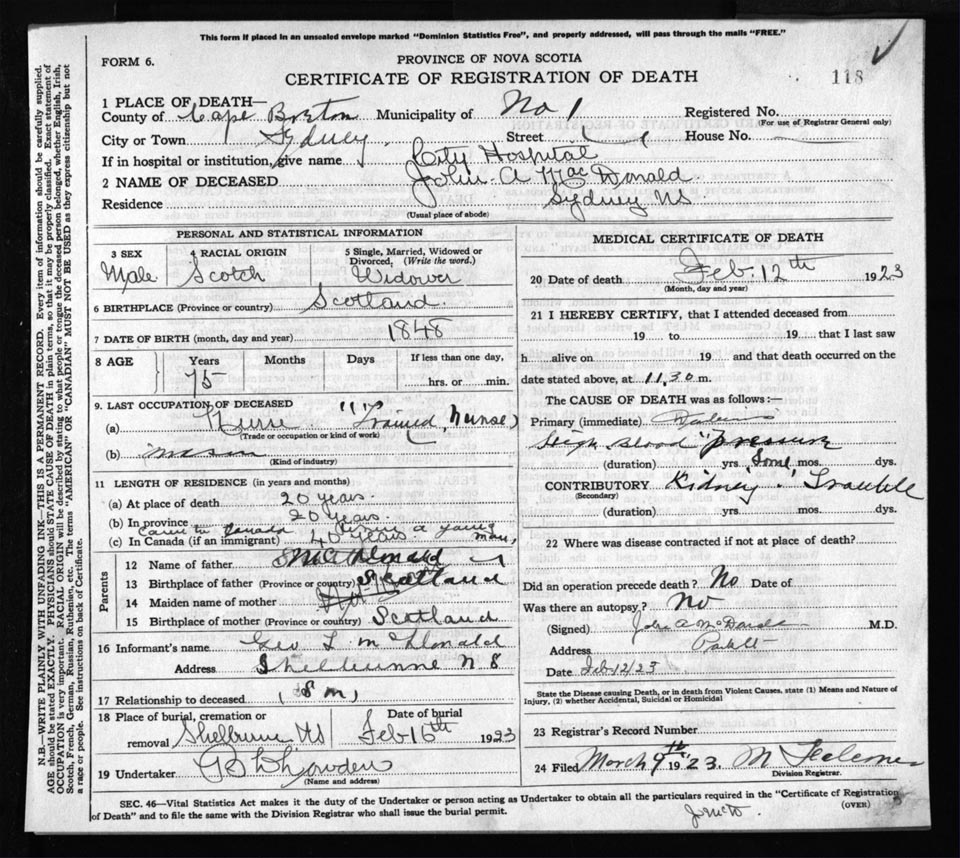 This form if placed in an unsealed envelope marked "Dominion Statistics Free", and properly addressed, will pass through the mails "FREE."
FORM 6.
PROVINCE OF NOVA SCOTIA
CERTIFICATE OF REGISTRATION OF DEATH
118
1 PLACE OF DEATH—
County of Cape Breton Municipality of No 1 Registered No.
(For use of Registrar General only)
City or Town Sydney. Street House No.
If in hospital or institution, give name City Hospital
2 NAME OF DECEASED John A MacDonald
Residence Sydney NS
(Usual place of abode)
PERSONAL AND STATISTICAL INFORMATION
3 SEX 4 RACIAL ORIGIN 5 Single, Married, Widowed or Divorced, (Write the word.)
Male Scotch Widower
6 BIRTHPLACE (Province or country) Scotland
7 DATE OF BIRTH (month, day and year) 1848
8 AGE Years Months Days If less than one day,
75 hrs. or min.
9 LAST OCCUPATION OF DECEASED
(a) Nurse "(Trained Nurse)
(Trade or occupation or kind of work)
(b) Mason
(Kind of industry)
11 LENGTH OF RESIDENCE (in years and months)
(a) At place of death 20 years.
(b) In province 20 years.
Came to Canada a young man,
(c) In Canada (if an immigrant) 40 years.
Parents
12 Name of father McDonald
13 Birthplace of father (Province or country) Scotland
14 Maiden name of mother
15 Birthplace of mother (Province or country) Scotland
16 Informant's name Geo L McDonald
Address Shelburne N S
17 Relationship to deceased (Son)
18 Place of burial, cremation or removal Shelburne NS Date of burial Feb 16th 1923
19 Undertaker
(Name and address)
MEDICAL CERTIFICATE OF DEATH
20 Date of death Feb. 12th 1923
(Month, day and year)
21 I HEREBY CERTIFY, that I attended deceased from
19 to 19 that I last saw
h alive on 19 and that death occurred on the
date stated above, at 11.30 m.
The CAUSE OF DEATH was as follows:—
Primary (immediate)
High Blood pressure
(duration) yrs. Some mos. dys.
CONTRIBUTORY Kidney Trouble
(Secondary)
(duration) yrs. mos. dys.
22 Where was disease contracted if not at place of death?
Did an operation precede death? No Date of
Was there an autopsy? No
(Signed) John A McDonald M.D.
Address
Date Feb 12/23
State the Disease causing Death, or in death from Violent Causes, state (1) Means and Nature of Injury, (2) whether Accidental, Suicidal or Homicidal
23 Registrar's Record Number
24 Filed March 9th 1923.
Division Registrar.
SEC. 46—Vital Statistics Act makes it the duty of the Undertaker or person acting as Undertaker to obtain all the particulars required in the "Certificate of Registration
of Death" and to file the same with the Division Registrar who shall issue the burial permit.
(OVER)
N.B.—WRITE PLAINLY WITH UNFADING INK—THIS IS A PERMANENT RECORD. Every item of information should be carefully supplied.
AGE should be stated EXACTLY. PHYSICIANS should STATE CAUSE OF DEATH in plain terms, so that it may be properly classified. Exact statement of
OCCUPATION is very important. RACIAL ORIGIN will be described by stating to what people or tongue the deceased person belonged, whether English, Irish,
Scotch, French, German, Russian, Ruthenian, etc. The terms "AMERICAN" OR "CANADIAN" MUST NOT BE USED as they express citizenship but not
a race or people. See instructions on back of Certificate.